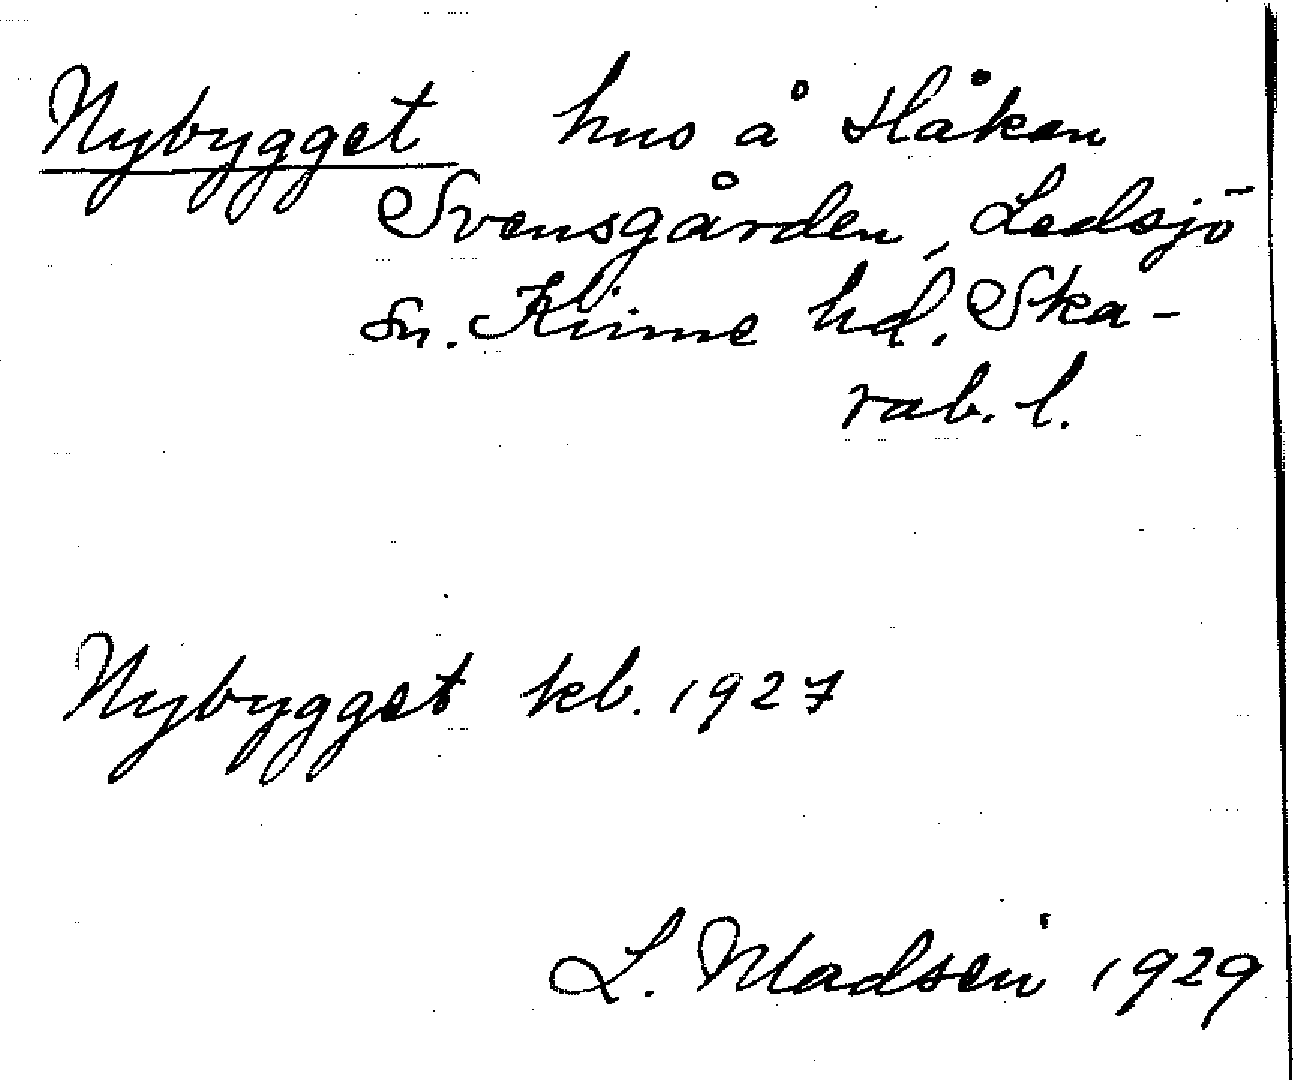 Nybygget hus å Håken
Svensgården, Ledsjö
sn. Kinne hd. Ska-
rab. l.
Nybygget kb. 1927
L. Madsén 1929